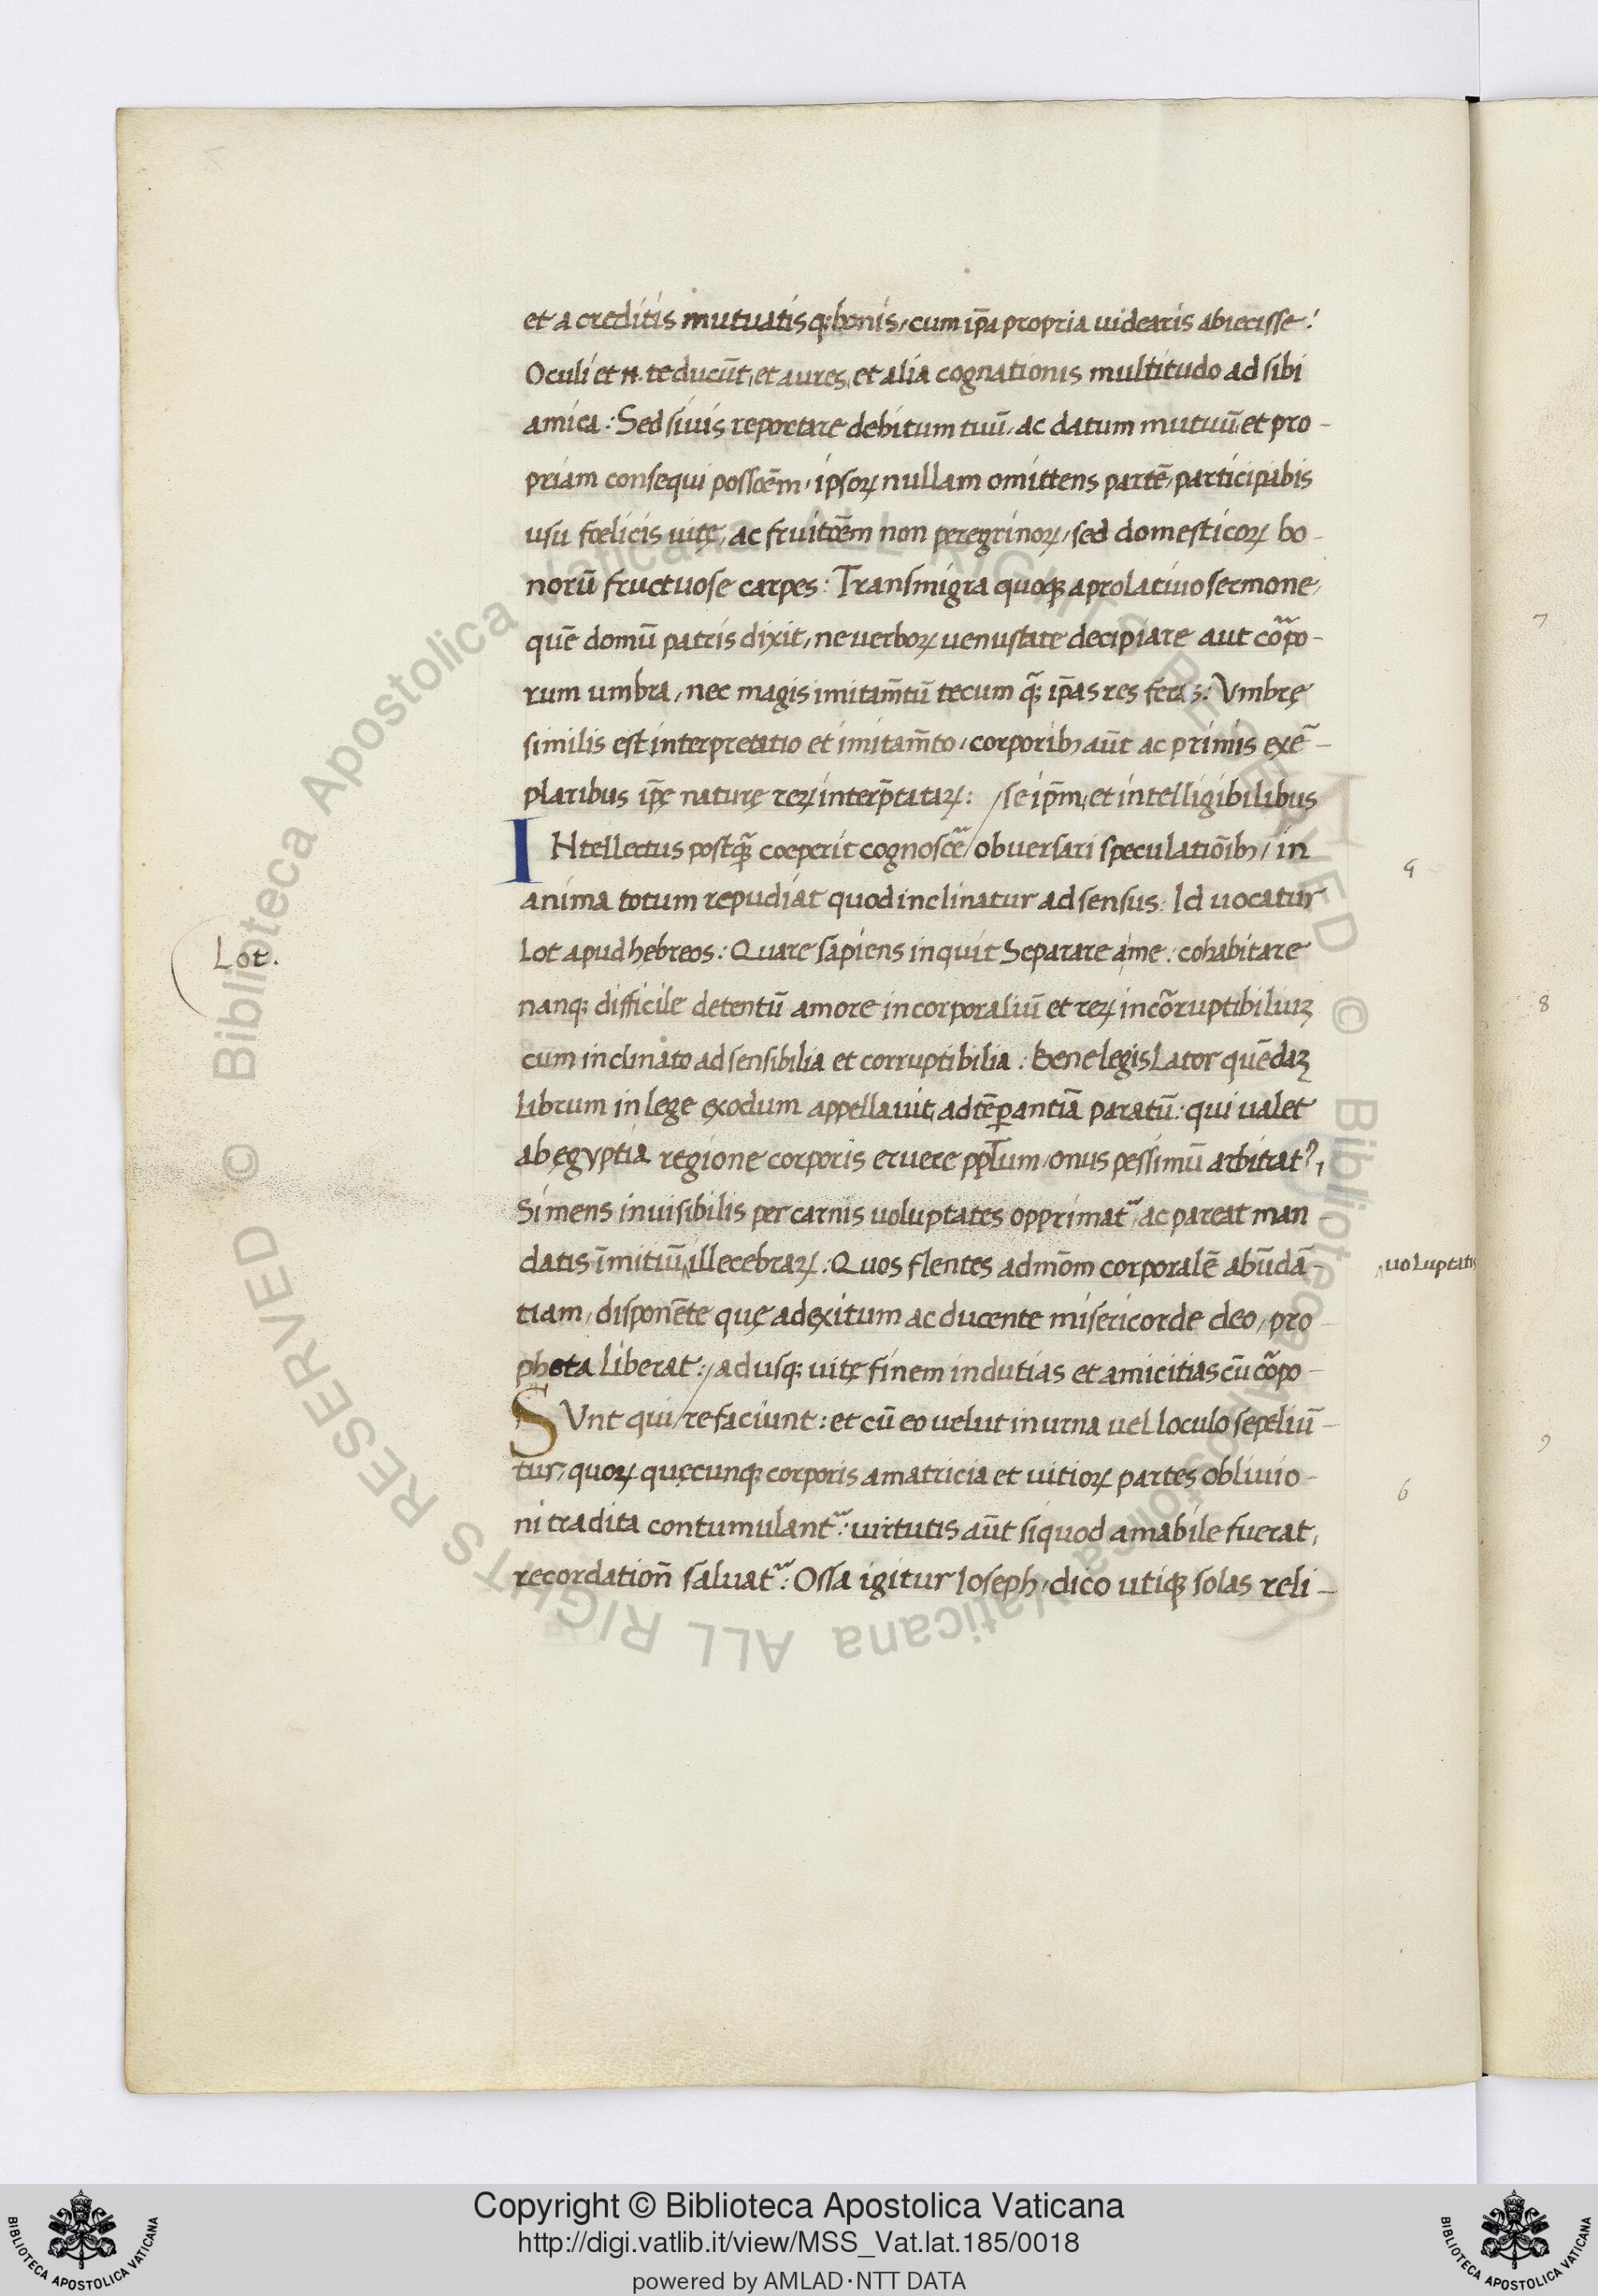 et a creditis mutuatis q; bonis, cum ip̄a propria uidearis abiecisse!
Oculi et n̄. te ducūt, et aures, et alia cognationis multitudo ad sibi
amica: Sed si uis reportare debitum tuū, ac datum mutuū et pro-
priam consequi possōem, ipsoꝝ nullam omittens partē, participabis
usu fœlicis uitę, ac fruitōem non peregrinoꝝ, sed domesticoꝝ bo-
norū fructuose carpes: Transmigra quoqꝫ a prolatiuo sermone,
quē domū patris dixit, ne uerboꝝ uenustate decipiare aut cōꝛpo-
rum umbra, nec magis imitam̄tū tecum qꝫ ip̄as res feras: Vmbrę
similis est interpretatio et imitam̄to, corporibꝫ aūt ac primis exē-
plaribus ip̄ę naturę reꝝ interp̄tataꝝ: / se ip̄m, et intelligibilibus
INtellectus postqꝫ coeperit cognoscere / obuersari speculatiōibꝫ, in
anima totum repudiat quod inclinatur ad sensus. Id uocatur
Lot apud hębreos: Quare sapiens inquit Separare a me: cohabitare
Lot.
nanqꝫ difficile detentū amore incorporaliū et reꝝ incōrruptibiliuꝫ
cum inclinato ad sensibilia et corruptibilia: Bene legislator quēdaꝫ
librum in lege exodum appellauit, ad tēꝑantiā paratū: qui ualet
ab ęgyptia regione corporis eruere pplum, onus pessimū arbitrat᷑,
Si mens inuisibilis per carnis uoluptates opprimat᷑, ac pareat man
datis īmitiū illecebraꝝ: Quos flentes ad mōm corporalē abūdā-
uoluptatū
tiam, disponēte quę ad exitum ac ducente misericorde deo, pro
pheta liberat: / ad usqꝫ uitę finem indutias et amicitias cū cōꝛpo-
SVnt qui / re faciunt: et cū eo uelut in urna uel loculo sepeliū-
tur, quoꝝ quęcunqꝫ corporis amatricia et uitioꝝ partes obliuio-
ni tradita contumulant᷑: uirtutis aūt siquod amabile fuerat,
recordation̄ saluat᷑: Ossa igitur Ioseph, dico utiqꝫ solas reli-
7
8
9
6
© Biblioteca Apostolica Vaticana ALL RIGHTS RESERVED © Biblioteca Apostolica Vaticana ALL RIGHTS RESERVED
Copyright © Biblioteca Apostolica Vaticana
http://digi.vatlib.it/view/MSS_Vat.lat.185/0018
powered by AMLAD·NTT DATA
BIBLIOTECA APOSTOLICA VATICANA
BIBLIOTECA APOSTOLICA VATICANA